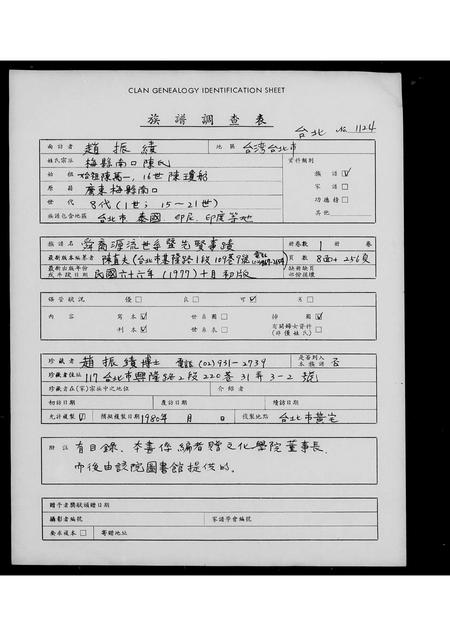 CLAN GENEALOGY IDENTIFICATION SHEET
族譜調查表
台北 No. 1124
面訪者 趙振績 地區 台湾台北市
姓氏宗派 梅縣南口陳氏 資料類別
始祖 始祖陳萬一, 16世陳瓊 族譜 ☑
原籍 廣東梅縣南口 家譜 □
世代 8代 (1世; 15~21世) 功德榜 □
族譜包含地區 台北市 泰國 印尼, 印度等地 其他
族譜名 舜裔源流世系暨先賢事蹟 冊卷數 1 冊 卷
最新版本編著者 陳直夫 (台北市基隆路1段109巷9號 頁數 8面+256頁
最新出版年份或手段日期 民國六十六年 (1977) 十月初版 缺冊缺頁
保管狀況 優 □ 良 □ 可 ☑ 劣 □
內容 寫本 ☑ 世系圖 □ 掛圖 ☑
刊本 □ 世系表 □ 有關婦女資料 (非僅姓氏) □
珍藏者 趙振績博士 電話 (02) 931-2739 是否列入本族譜 否
珍藏者住址 117 台北市興隆路2段220巷31弄3-2號
珍藏者在(家)宗族中之地位 介紹者
初訪日期 度訪日期 續訪日期
允許複製 ☑ 擬複製日期 1980年 月 日 複製地點 台北市黃宅
附註 有目錄、本書係編者贈文化學院董事長,
而後由該院圖書館提供的.
贈予者獎狀頒贈日期
攝影者編號 家譜學會編號
要求複本 □ 寄贈地址